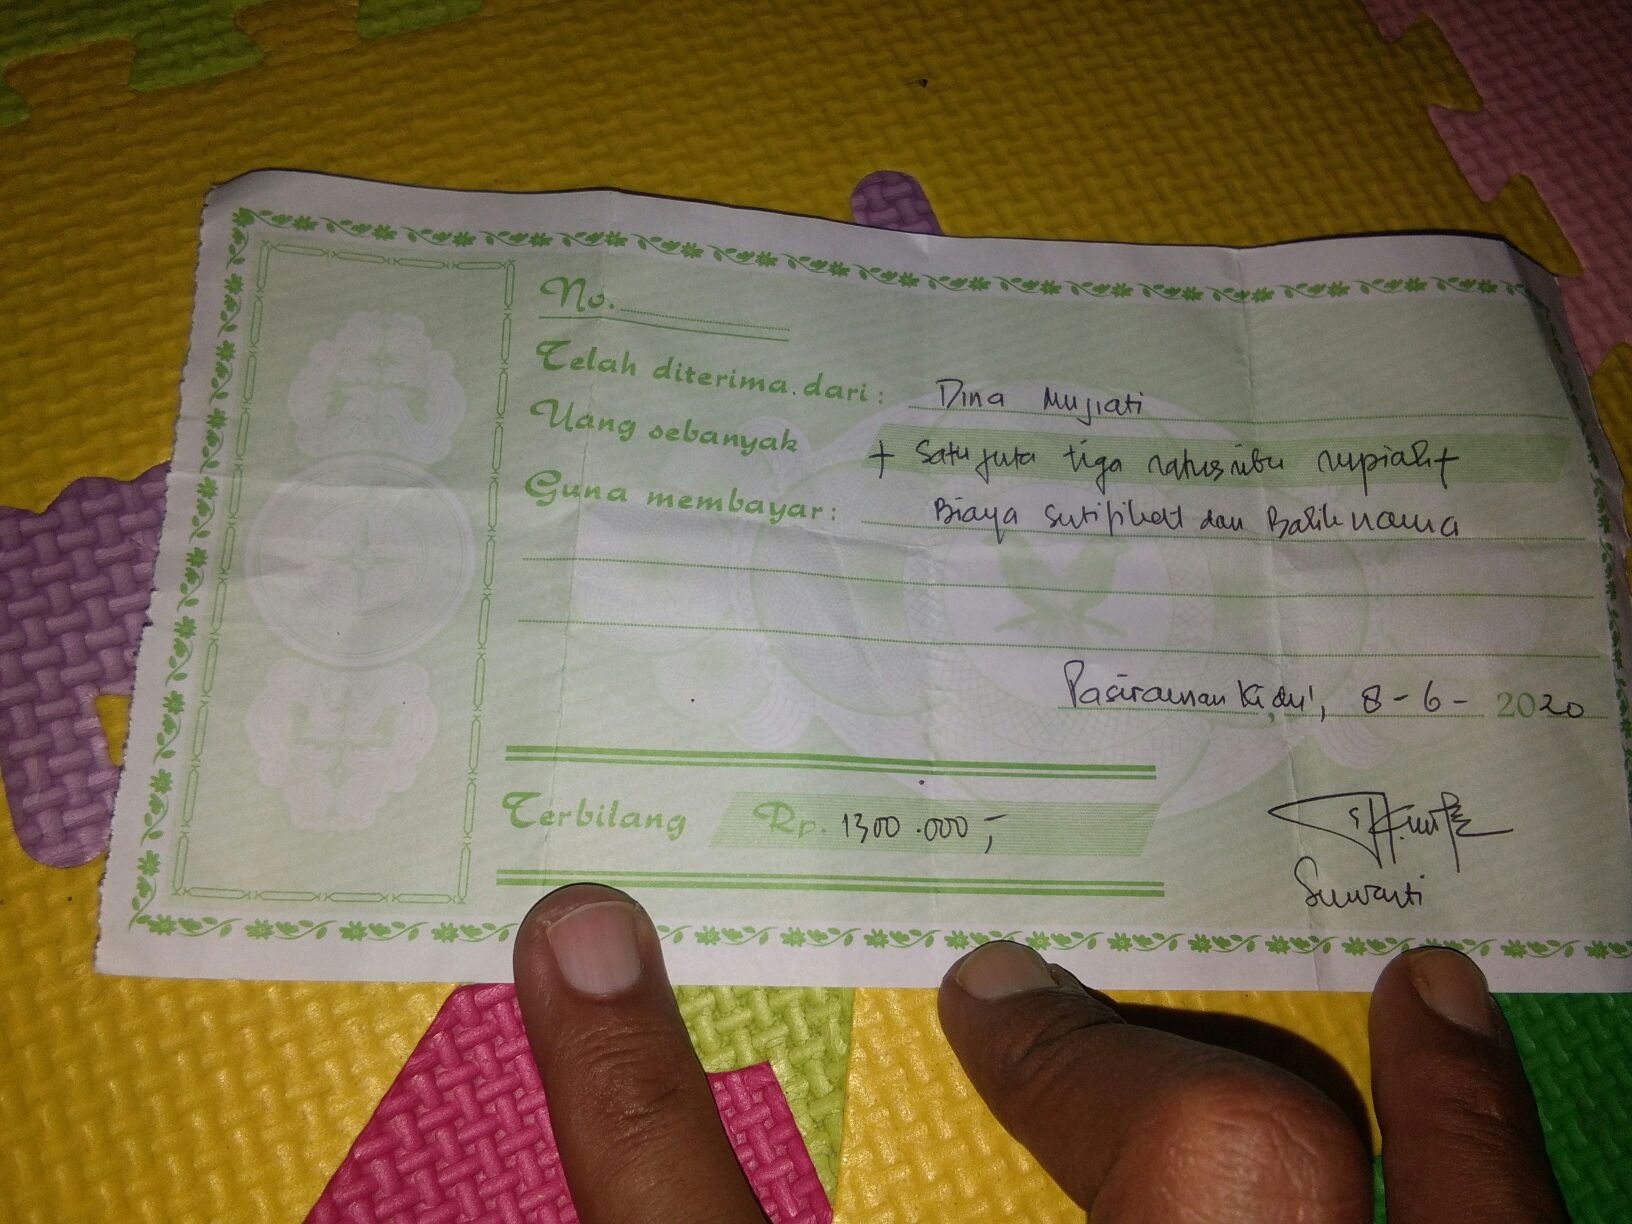 No.
Telah diterima dari : Dina Mujiati
Uang sebanyak + Satu juta tiga ratus ribu rupiah +
Guna membayar : Biaya Sertifikat dan Balik nama
Pasiraman Kidul, 8 - 6 - 2020
Terbilang Rp. 1300.000,-
Suwarti